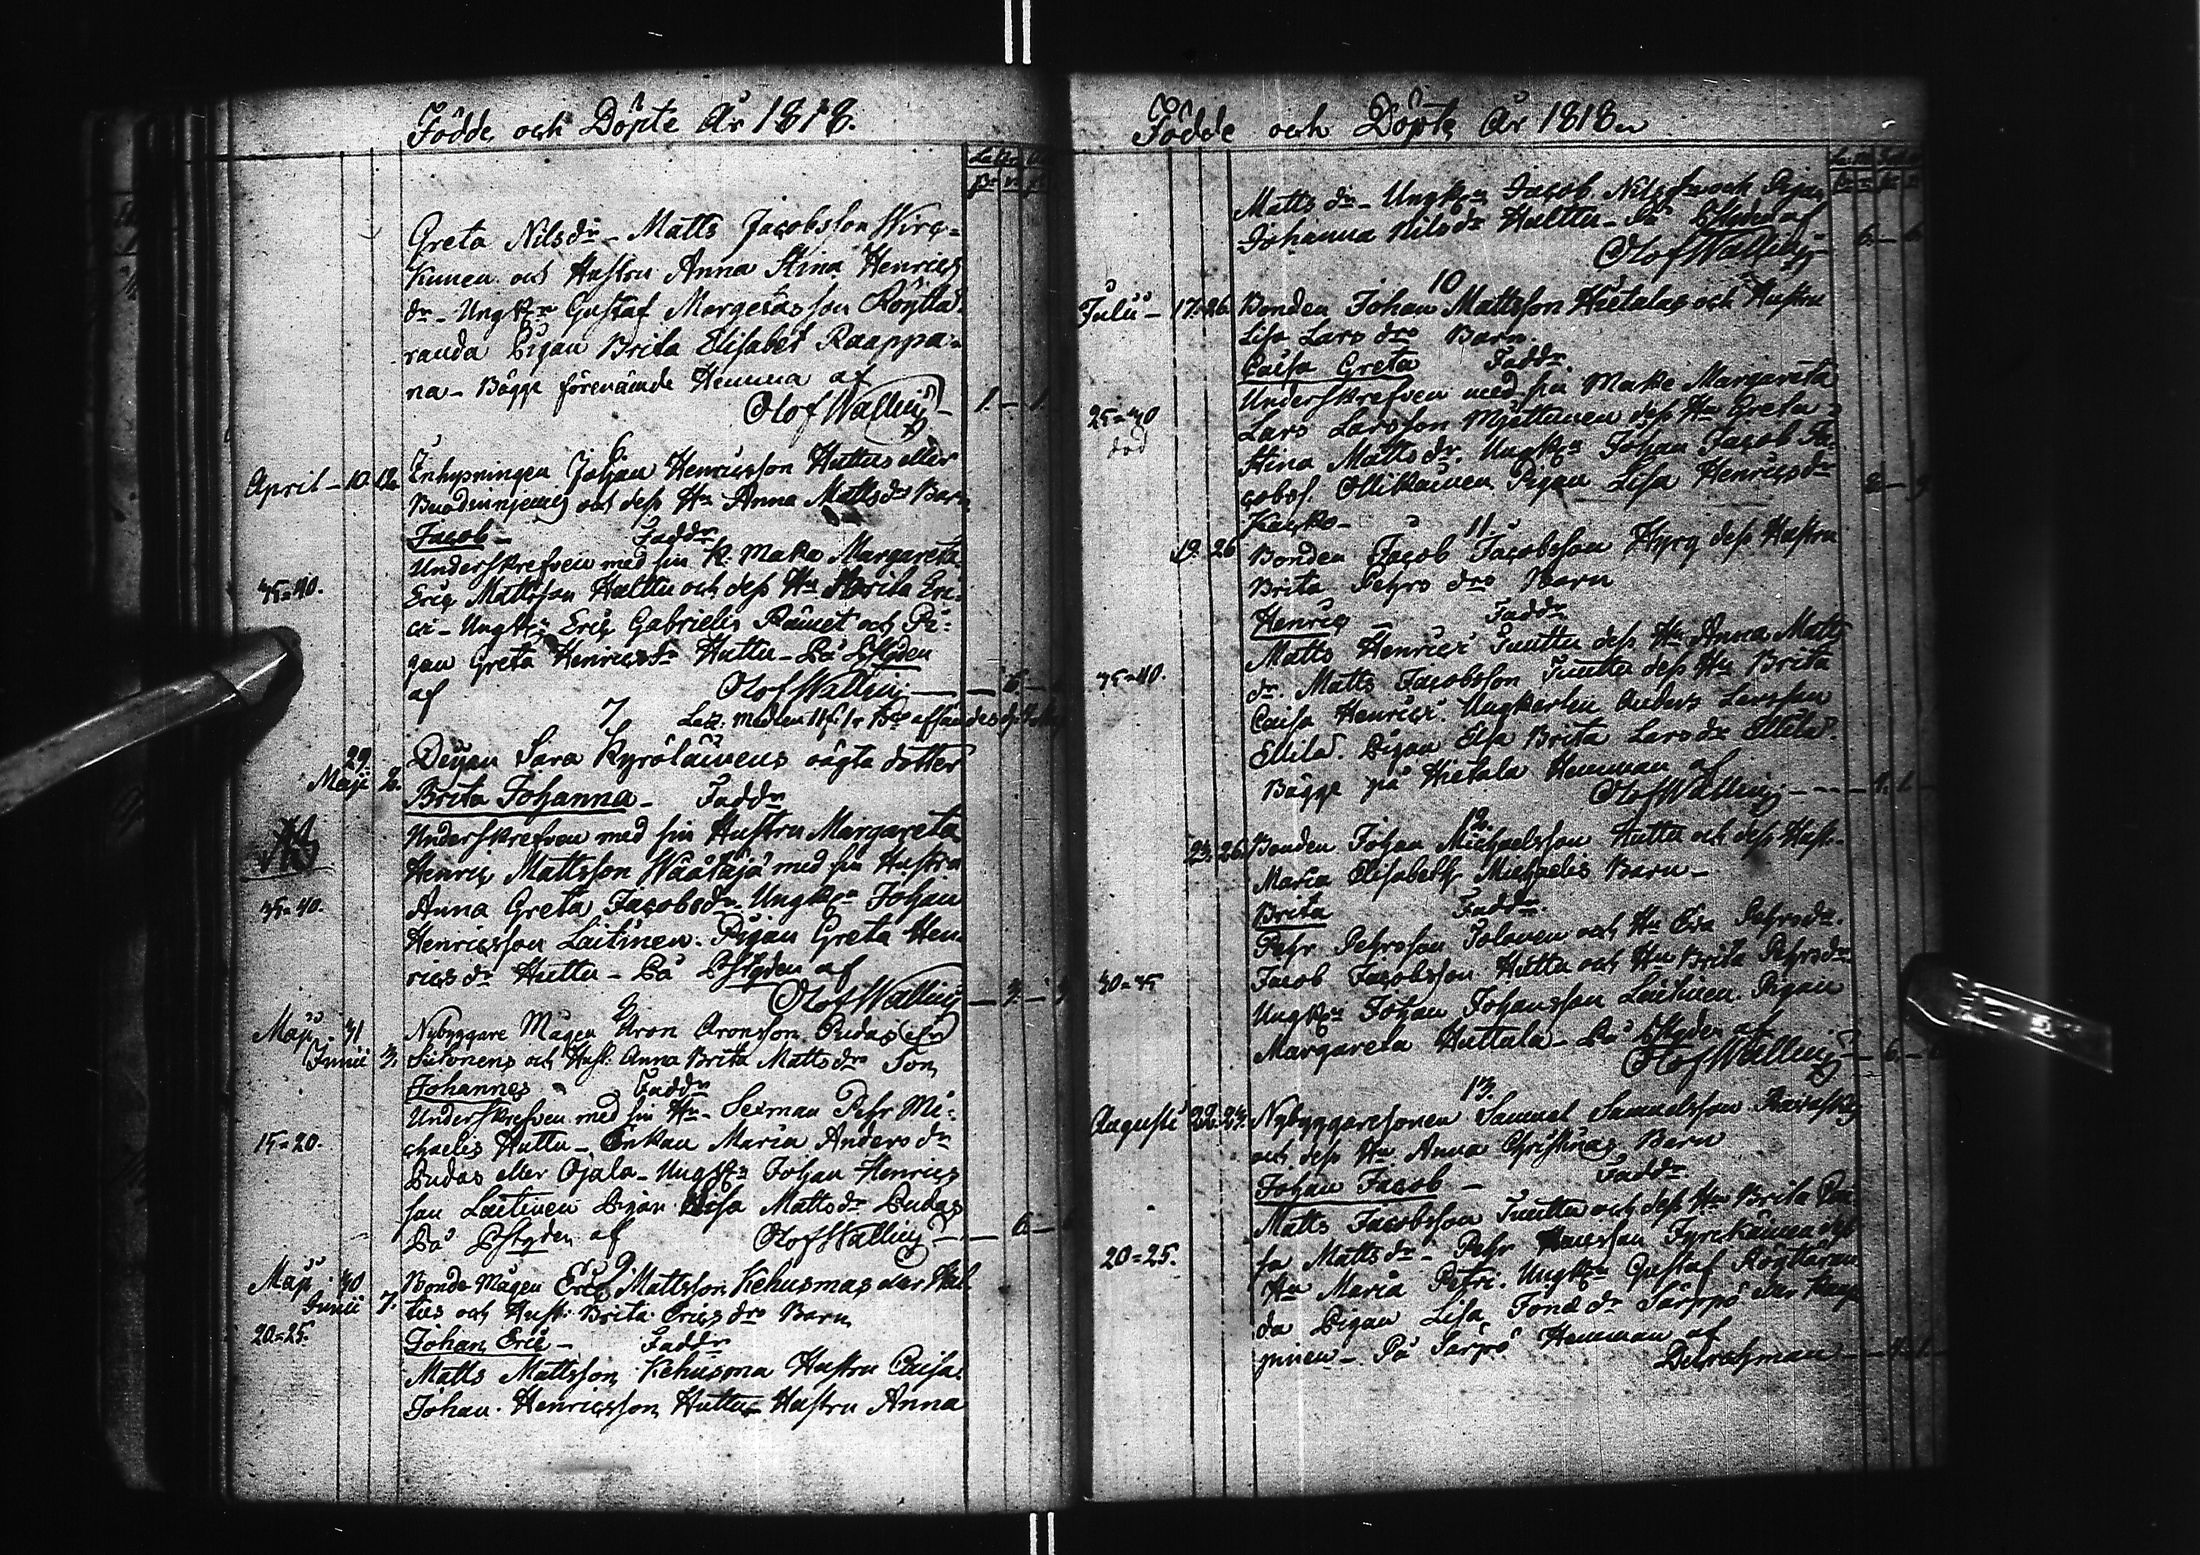 Födde och Döpte År 1818.
Greta Nilsdr – Matts Jacobsson Wirc=
kunen och Hustru Anna Stina Henrics
dr – Ungkn Gustaf Margetasson Röytta=
randa Pigan Brita Elisabet Raappa=
na – Bägge förenämde Hemma af
Olof Walling – 1. – 1.
6.
April – 10. 12. Inhysningen Johan Henricsson Huttus eller
och dess Hu Anna Matts drs Barn
Jacob – Faddr
Underskrefven med sin K. Maka Margareta
35=40. Eric Mattsson Huttu och dess Hu Brita Eri=
ci – Ungkn Eric Gabrielis Räinet och Pi=
gan Greta Henricsdr Huttu – På Pstgden
af Olof Walling – 6 –
7.
29 Maji 2. Pigan Sara Kyröläinens oägta dotter
Brita Johanna – Faddr
Underskrefven med sin Hustru Margareta
Henric Mattsson Määtäjä med sin Hustru
35=40. Anna Greta Jacobsdr. Ungkn Johan
Henricsson Laitinen. Pigan Greta Hen=
rics dr Huttu – På Pstgden af
Olof Walling – 3. –
8
Maji 31 Nybyggare Mågen Aron Aronsson Pudas
Junii 3. Siitonens och Hust. Anna Brita Matts drs Son
Johannes – Faddr
Underskrefven med sin Hu – Sexman Pehr Mi=
15=20. chaelis Huttu – Enkan Maria Anders dr
Pudas eller Ojala – Ungkn Johan Henrics
son Laitinen Pigan Lisa Matts dr Pudas
På Pstgden af Olof Walling – 6 –
9.
Maji 30 Bonde Mågen Eric Mattsson Kehusmas eller
Junii 7. och Hust. Brita Erics drs Barn
20=25. Johan Eric – Faddr
Matts Mattsson Kehusma Hustru Caisa.
Johan Henricsson Huttu Hustru Anna
Födde och Döpte År 1818.
Matts dr – Ungkn Jacob Nilsson och Pigan
Johanna Nilsdr Huttu – På Pstgden af
Olof Walling – 6. – 6.
10
Julii – 17. 26. Bonden Johan Mattsson Hietalas och Hustru
Lisa Lars drs Barn.
Caisa Greta Faddr.
Underskrefven med sin Maka Margareta
25=30 Lars Larsson Myöttänen dess Hu Greta
död Stina Matts dr. Ungkn Johan Jacob Ja=
cobss. Ollikainen. Pigan Lisa Henrics dr
11.
19. 26 Bonden Jacob Jacobsson Hyry dess Hustru
Brita Pehrs drs Barn
Henric – Faddr
Matts Henrici Juuttu dess Hu Anna Matts
35=40. dr. Matts Jacobsson Juuttu dess Hu Brita
Caisa Henrici. Ungkarlen Anders Larsson
Ellilä. Pigan Elsa Brita Lars dr Ellilä
Bägge på Hietala Hemman af
Olof Walling – 1. 1.
12.
23. 26. Bonden Johan Michaelsson Huttu och dess Hust.
Maria Elisabeth Michaelis Barn –
Brita Faddr.
Pehr Pehrsson Tolonen och Hu Eva Pehrsdr.
30=35 Jacob Jacobsson Huttu och Hu Brita Pehrsdr
Ungkn Johan Johansson Laitinen. Pigan
Margareta Huttala – På Pstgden af
Olof Walling – 6 –
13.
Augusti 22. 24. Nybyggaresonen Samuel Samuelsson
och dess Hu Anna Christinas Barn
Johan Jacob – Faddr
Matts Jacobsson Juuttu och dess Hu Brita Cai
sa Matts dr – Pehr Tyrckäinen dess
20=25. Hu Maria Petri. Ungkn Gustaf Röyttäran
da Pigan Lisa Jonæ dr Särppö
På Särpö Hemman af
Durchman – 1. 1.